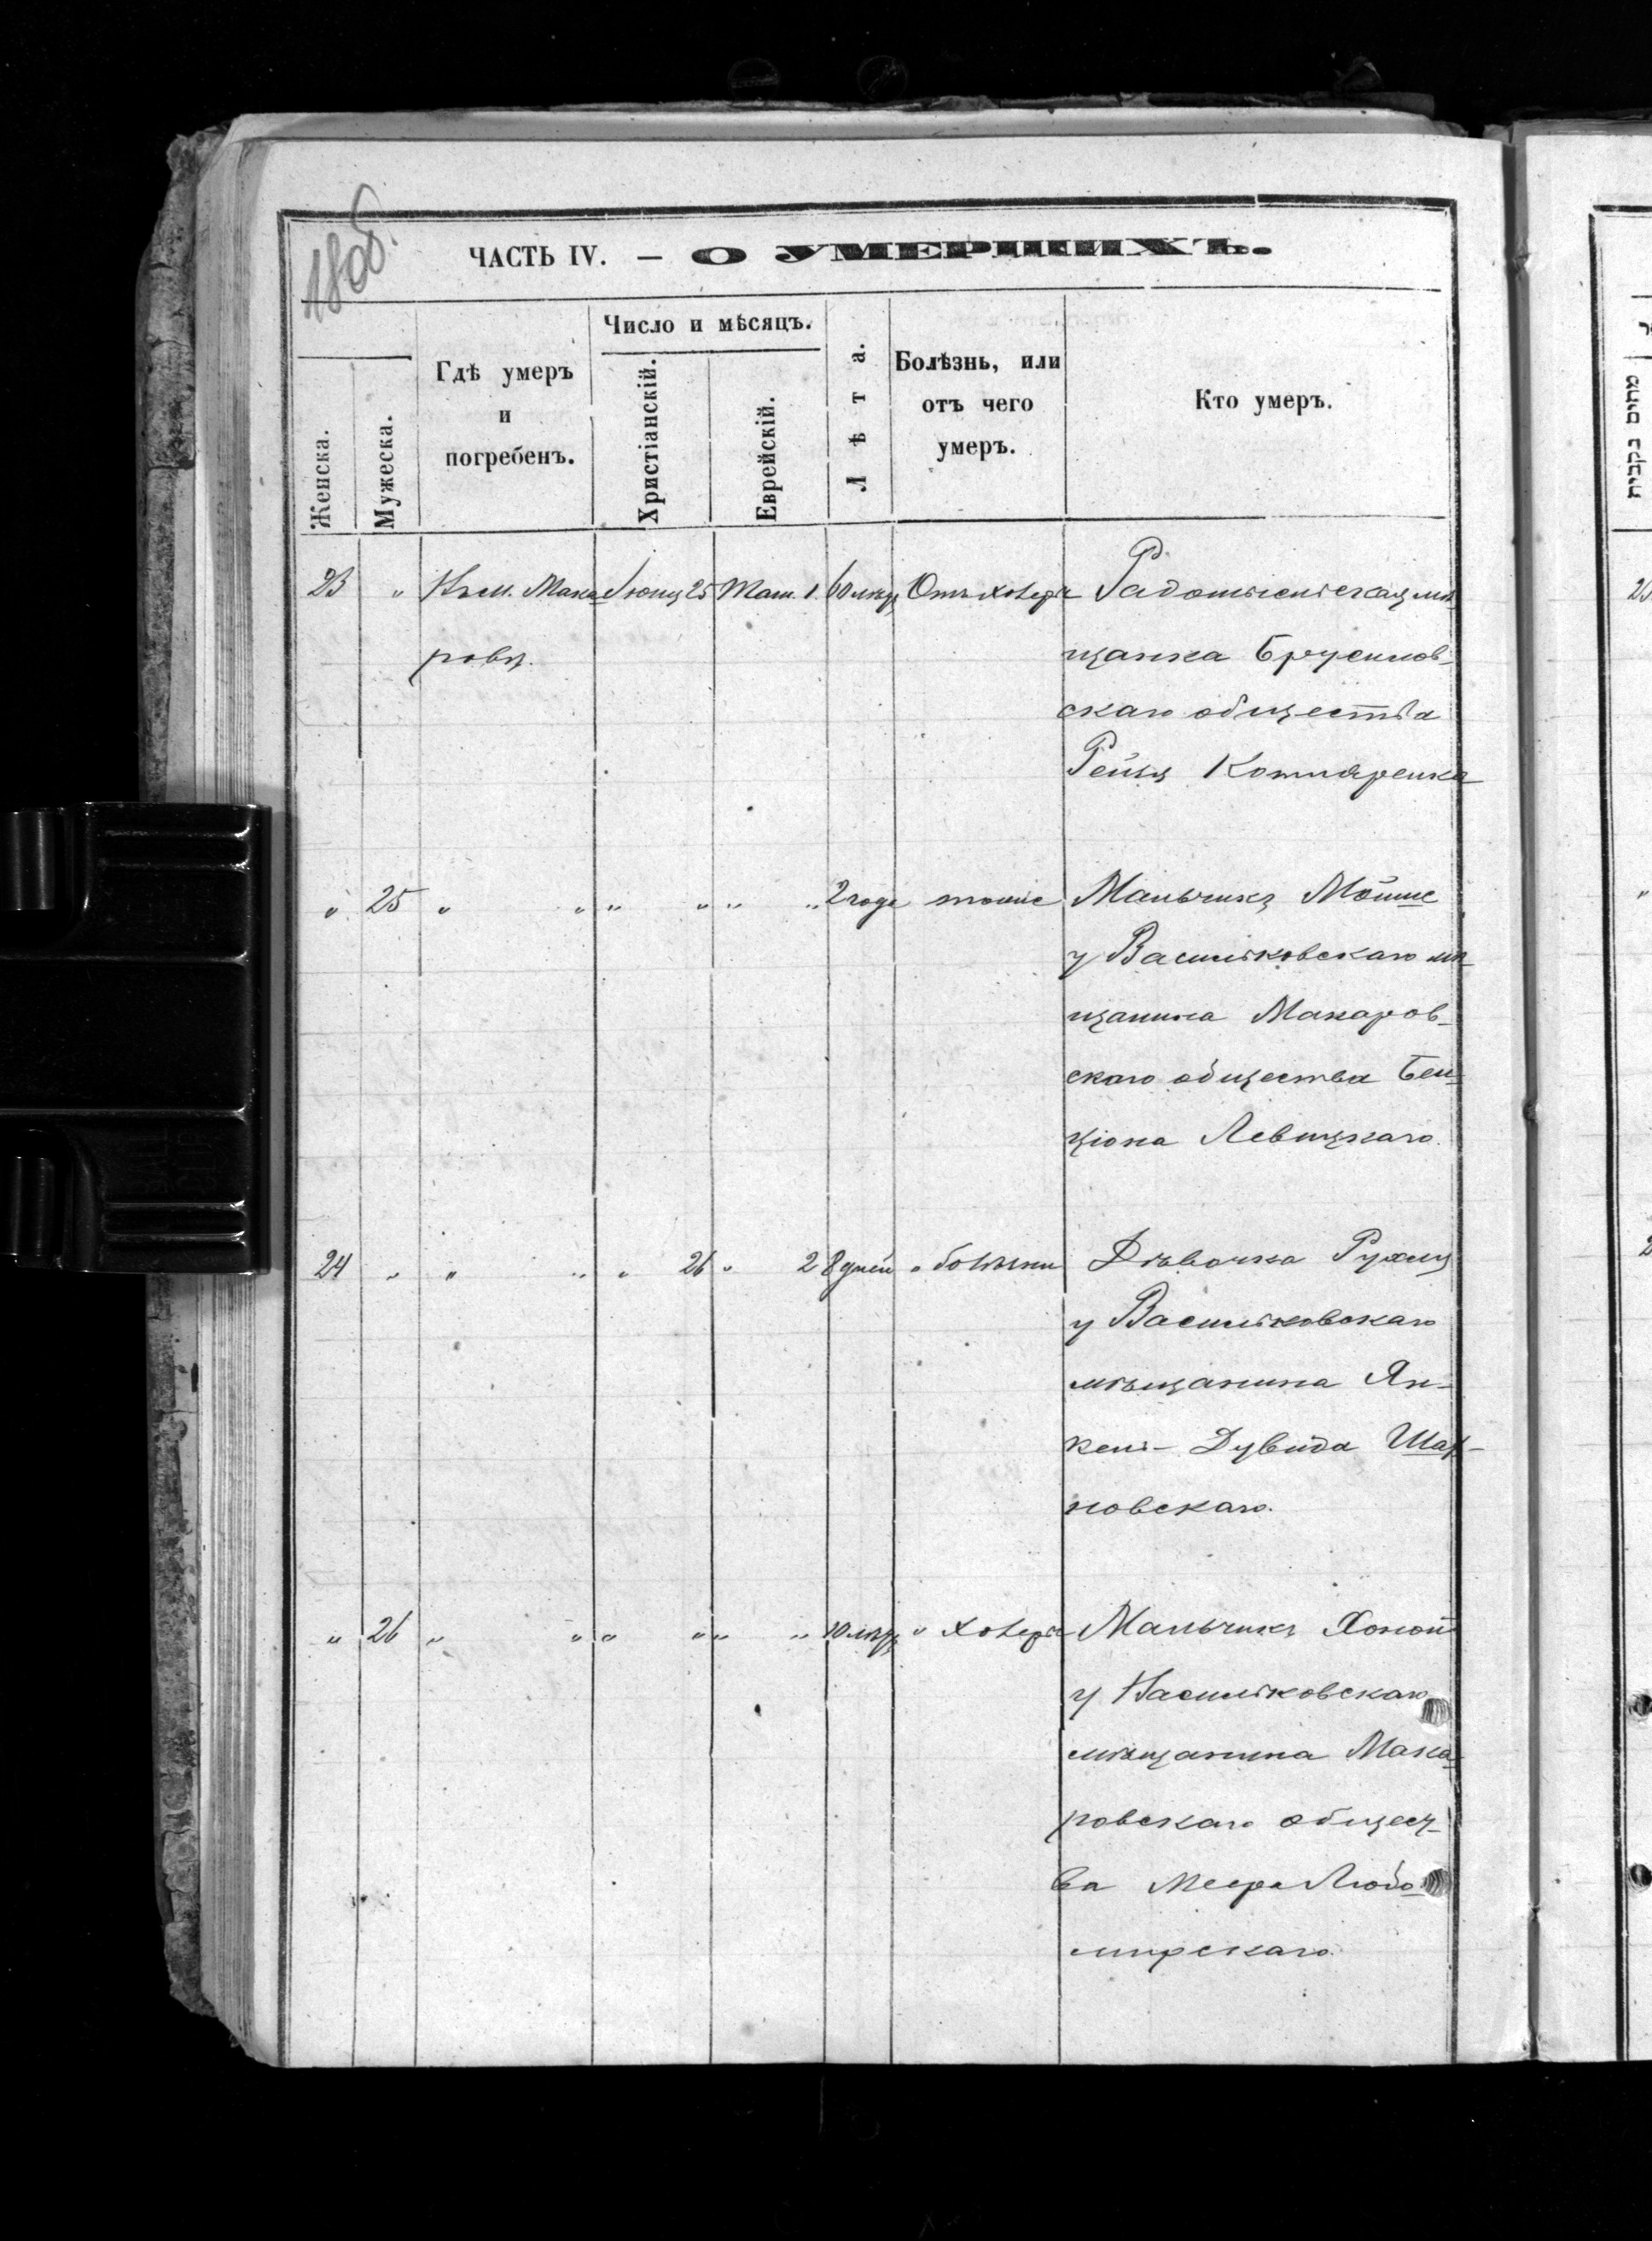 180б.
ЧАСТЬ IV. — О УМЕРШИХЪ.
Женска.
Мужеска.
Гдѣ умеръ
и
погребенъ.
Число и мѣсяцъ.
Христіанскій.
Еврейскій.
Лѣта.
Болѣзнь, или
отъ чего
умеръ.
Кто умеръ.
23 " Въ м. Мака- Іюня 25 Там. 1 60 лѣтъ Отъ холеры Радомысльская мѣ-
ровѣ. щанка Брусилов-
скаго общества
Рейзя Котляренка
" 25 " " " " " " 2 года тоже Мальчикъ Мойше
у Васильковскаго мѣ-
щанина Макаров-
скаго общества Бен-
ціона Левицкаго.
24 " " " " 26 " 2 8 дней " болѣзни Дѣвочка Рухля
у Васильковскаго
мѣщанина Ян-
кель-Дувида Шар-
новскаго.
" 26 " " " " " " 10 лѣтъ " холеры Мальчикъ
у Васильковскаго
мѣщанина Мака-
ровскаго общест-
ва Меера Любо-
мирскаго.
מתים נקבות